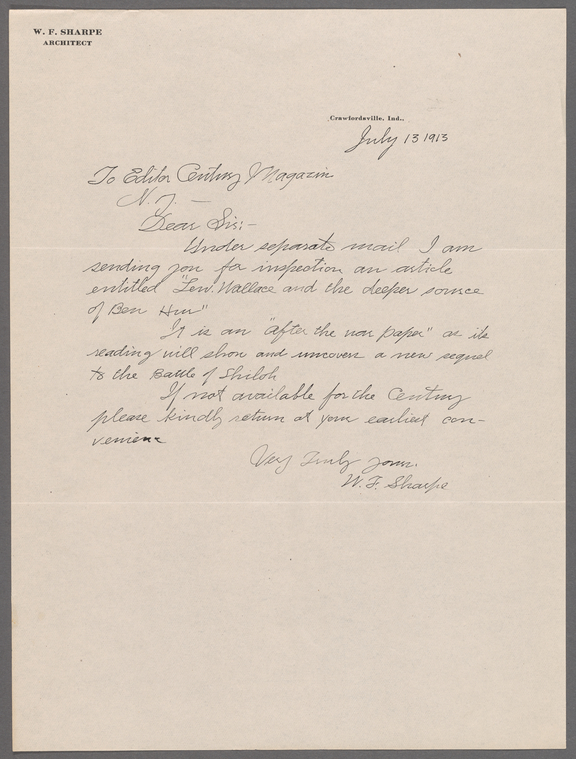 W. F. SHARPE
ARCHITECT
Crawfordsville, Ind.,
July 13 1913
To Editor Century Magazin
N. Y. —
Dear Sir;—
Under separate mail I am
sending you for inspection an article
entitled "Lew. Wallace and the deeper source
of Ben Hur"
It is an "after the war paper" as its
reading will show and uncovers a new sequel
to the Battle of Shiloh
If not available for the Century
please kindly return at your earliest con-
venience
Very Truly yours.
W. F. Sharpe